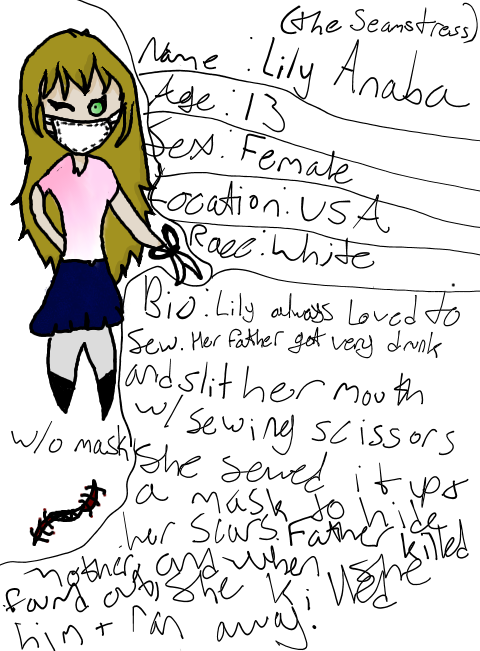 (the Seamstress)
Name : Lily Anaba
Age : 13
Sex : Female
Location : USA
Race : White
Bio : Lily always loved to
sew. Her father got very drunk
and slit her mouth
w/ sewing scissors
w/o mask
She sewed it up &
a mask to hide
her scars. Father killed
mother, and when she
found out, she killed
him + ran away.